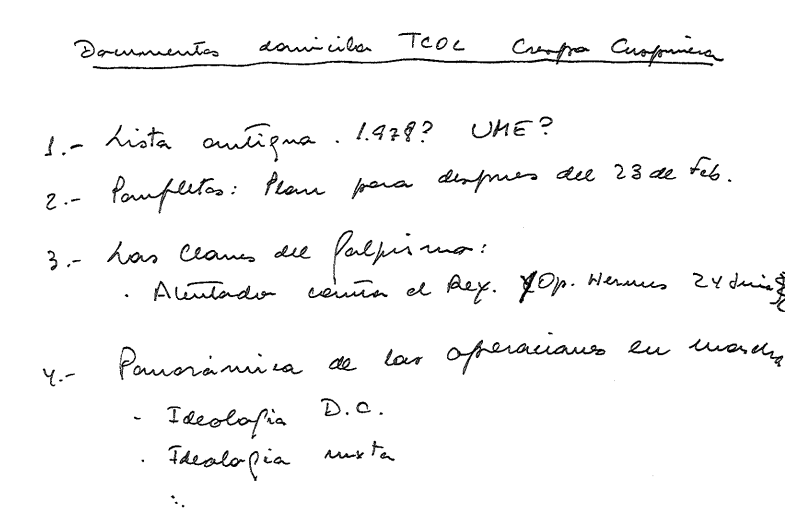 Documentos domicilio TCOL Crespo Cuspinera
1.- Lista antigua. 1.978? UME?
2.- Panfletos: Plan para despues del 23 de Feb.
3.- Las Claves del Golpismo:
· Atentado contra el Rey. Op. Hermes 24 Junio
4.- Panorámica de las operaciones en marcha
- Ideología D.C.
· Ideología mixta